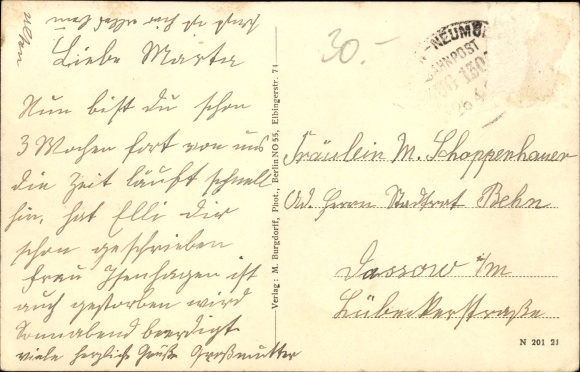 Liebe Marta
Nun bist du schon
3 Wochen fort von uns
die Zeit läuft schnell
hin, hat Elli dir
schon geschrieben
Frau Isenhagen ist
auch gestorben wird
Sonnabend beerdigt
viele herzliche Grüße Großmutter
Verlag: M. Burgdorff, Phot., Berlin NO 55, Elbingerstr. 71
30.-
NEUMÜ
BAHNPOST
Fräulein M. Schoppenhauer
Ad. Herrn Stadtrat Behn
Dassow i/M
Lübeckerstraße
N 201 21